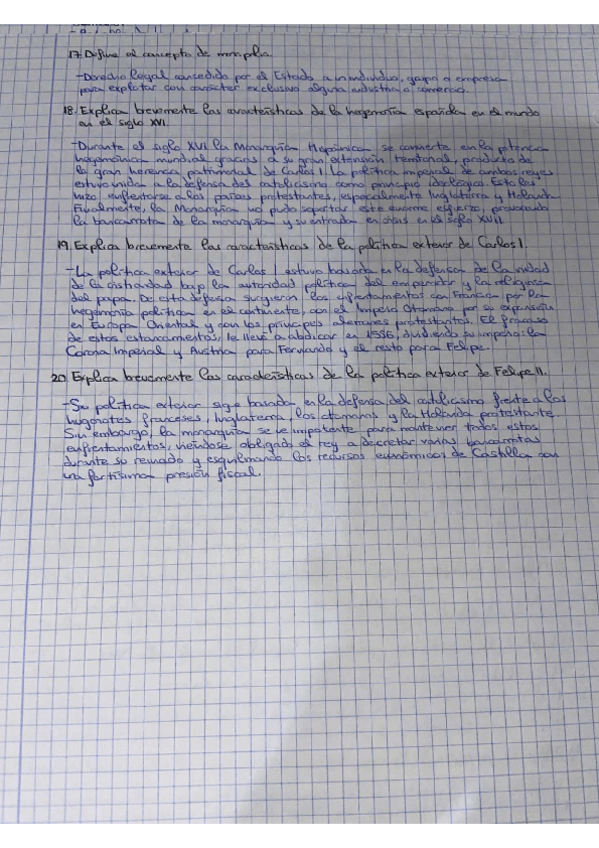 17. Define el concepto de monopolio.
-Derecho legal concedido por el Estado a un individuo, grupo o empresa
para explotar con carácter exclusivo alguna industria o comercio.
18. Explica brevemente las características de la hegemonía española en el mundo
en el siglo XVI.
-Durante el siglo XVI la Monarquía Hispánica se convierte en la potencia
hegemónica mundial gracias a su gran extensión territorial, producto de
la gran herencia patrimonial de Carlos I. La política imperial de ambos reyes
estuvo unida a la defensa del catolicismo como principio ideológico. Esto les
hizo enfrentarse a los países protestantes, especialmente Inglaterra y Holanda
Finalmente, la Monarquía no pudo soportar este enorme esfuerzo, provocando
la bancarrota de la monarquía y su entrada en crisis en el siglo XVII.
19. Explica brevemente las características de la política exterior de Carlos I.
-La política exterior de Carlos I estuvo basada en la defensa de la unidad
de la cristiandad bajo la autoridad política del emperador y la religiosa
del papa. De esta defensa surgieron los enfrentamientos con Francia por la
hegemonía política en el continente, con el Imperio Otomano por su expansión
en Europa Oriental y con los príncipes alemanes protestantes. El fracaso
de estos estancamientos, le llevó a abdicar en 1556, dividiendo su imperio: la
Corona Imperial y Austria para Fernando y el resto para Felipe.
20. Explica brevemente las características de la política exterior de Felipe II.
-Su política exterior sigue basada en la defensa del catolicismo frente a los
hugonotes franceses, Inglaterra, los otomanos y la Holanda protestante.
Sin embargo, la monarquía se ve impotente para mantener todos estos
enfrentamientos, viéndose obligado el rey a decretar varias bancarrotas
durante su reinado y esquilmando los recursos económicos de Castilla con
una fortísima presión fiscal.